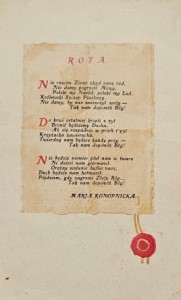 ROTA.
Nie rzucim Ziemi skąd nasz ród,
Nie damy pogrześć Mowy,
Polski my Naród, polski my Lud,
Królewski Szczep Piastowy,
Nie damy, by nas zniemczył wróg —
Tak nam dopomóż Bóg!
Do krwi ostatniej kropli z żył
Bronić będziemy Ducha,
Aż się rozpadnie w proch i pył
Krzyżacka zawierucha.
Twierdzą nam będzie każdy próg —
Tak nam dopomóż Bóg!
Nie będzie niemiec pluł nam w twarz
Ni dzieci nam germanił.
Orężny wstanie hufiec nasz,
Duch będzie nam hetmanił,
Pójdziem, gdy zagrzmi Złoty Róg —
Tak nam dopomóż Bóg!
MARJA KONOPNICKA.